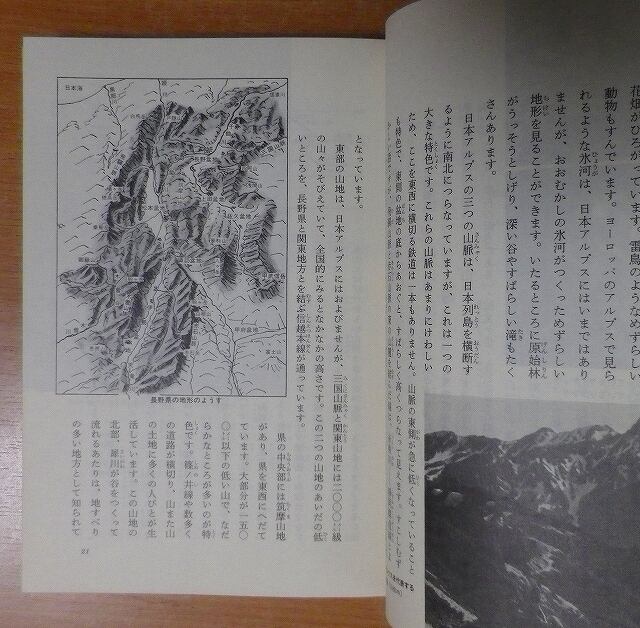 花畑がひろがっています。雷鳥のようなめずらしい
動物もすんでいます。ヨーロッパのアルプスで見ら
れるような氷河は、日本アルプスにはいまではあり
ませんが、おおむかしの氷河がつくっためずらしい
地形を見ることができます。いたるところに原始林
がうっそうとしげり、深い谷やすばらしい滝もたく
さんあります。
日本アルプスの三つの山脈は、日本列島を横断す
るように南北につらなっていますが、これは一つの
大きな特色です。これらの山脈はあまりにけわしい
ため、ここを東西に横切る鉄道は一本もありません。山脈の東側が急に低くなっていること
も特色で、東側の盆地の底からあおぐと、すばらしく高くつらなって見えます。
となっています。
東部の山地は、日本アルプスにはおよびませんが、三国山脈と関東山地には二〇〇〇㍍級
の山々がそびえていて、全国的にみるとなかなかの高さです。この二つの山地のあいだの低
いところを、長野県と関東地方とを結ぶ信越本線が通っています。
県の中央部には筑摩山地
があり、県を東西にへだて
ています。大部分が一五〇
〇㍍以下の低い山で、なだ
らかなところが多いのが特
色です。篠ノ井線や数多く
の道路が横切り、山また山
の土地に多くの人びとが生
活しています。この山地の
北部、犀川が谷をつくって
流れるあたりは、地すべり
の多い地方として知られて
日本海
長野盆地
上田盆地
佐久盆地
松本盆地
甲府盆地
富士山
長野県の地形のようす
21